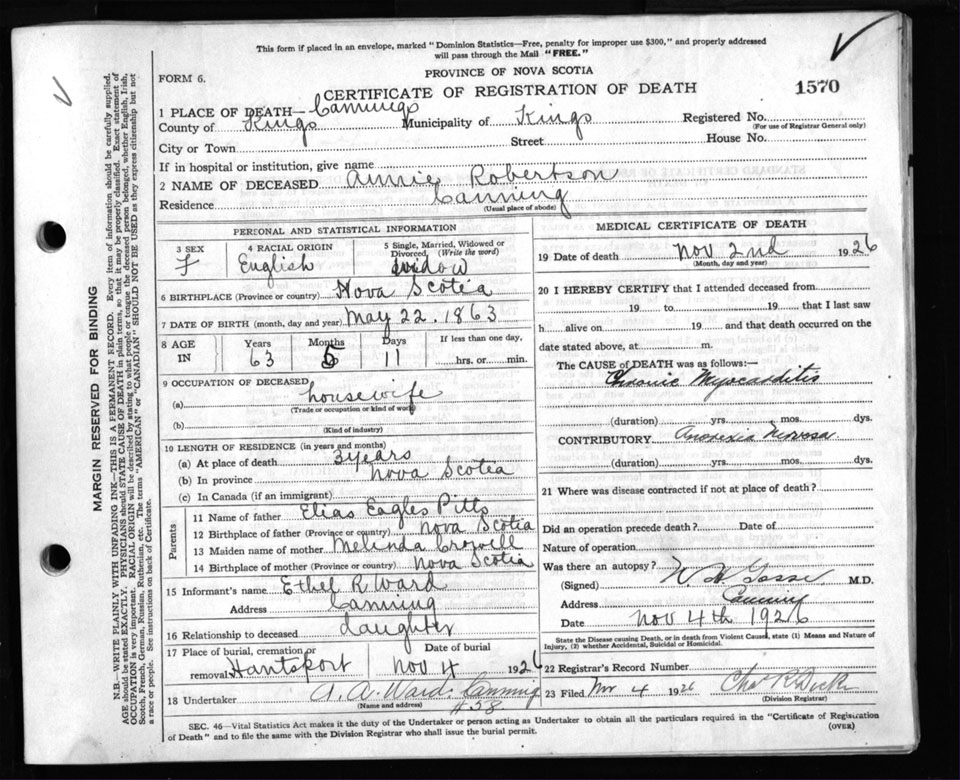 This form if placed in an envelope, marked "Dominion Statistics—Free, penalty for improper use $300," and properly addressed
will pass through the Mail "FREE."
PROVINCE OF NOVA SCOTIA
FORM 6.
CERTIFICATE OF REGISTRATION OF DEATH
1570
1 PLACE OF DEATH— Cannings
County of Kings Municipality of Kings Registered No.
(For use of Registrar General only)
City or Town Street House No.
If in hospital or institution, give name
2 NAME OF DECEASED Annie Robertson
Residence Canning
(Usual place of abode)
PERSONAL AND STATISTICAL INFORMATION
3 SEX 4 RACIAL ORIGIN 5 Single, Married, Widowed or
Divorced, (Write the word)
F English Widow
6 BIRTHPLACE (Province or country) Nova Scotia
7 DATE OF BIRTH (month, day and year) May 22. 1863
8 AGE IN Years Months Days If less than one day,
63 5 11 hrs. or min.
9 OCCUPATION OF DECEASED
(a) housewife
(Trade or occupation or kind of work)
(b)
(Kind of industry)
10 LENGTH OF RESIDENCE (in years and months)
(a) At place of death 3 years
(b) In province Nova Scotia
(c) In Canada (if an immigrant)
Parents
11 Name of father Elias Eagles Pitts
12 Birthplace of father (Province or country) Nova Scotia
13 Maiden name of mother Melinda Crowell
14 Birthplace of mother (Province or country) Nova Scotia
15 Informant's name Ethel R. Ward
Address Canning
16 Relationship to deceased daughter
17 Place of burial, cremation or Date of burial
removal Hantsport Nov 4 1926
18 Undertaker A. A. Ward. Canning
(Name and address)
#58
MEDICAL CERTIFICATE OF DEATH
19 Date of death Nov 2nd 1926
(Month, day and year)
20 I HEREBY CERTIFY that I attended deceased from
19 to 19 that I last saw
h alive on 19 and that death occurred on the
date stated above, at m.
The CAUSE OF DEATH was as follows:—
Chronic Myocarditis
(duration) yrs. mos. dys.
CONTRIBUTORY Anorexia Nervosa
(duration) yrs. mos. dys.
21 Where was disease contracted if not at place of death?
Did an operation precede death? Date of
Nature of operation
Was there an autopsy?
(Signed) M.D.
Address Canning
Date Nov 4th 1926
State the Disease causing Death, or in death from Violent Causes, state (1) Means and Nature of
Injury, (2) whether Accidental, Suicidal or Homicidal.
22 Registrar's Record Number
23 Filed Nov 4 1926
(Division Registrar)
SEC. 46—Vital Statistics Act makes it the duty of the Undertaker or person acting as Undertaker to obtain all the particulars required in the "Certificate of Registration
of Death" and to file the same with the Division Registrar who shall issue the burial permit.
(OVER)
MARGIN RESERVED FOR BINDING
N.B.—WRITE PLAINLY WITH UNFADING INK—THIS IS A PERMANENT RECORD. Every item of information should be carefully supplied.
AGE should be stated EXACTLY. PHYSICIANS should STATE CAUSE OF DEATH in plain terms, so that it may be properly classified. Exact statement of
OCCUPATION is very important. RACIAL ORIGIN will be described by stating to what people or tongue the deceased person belonged, whether English, Irish,
Scotch, French, German, Russian, Ruthenian, etc. The terms "AMERICAN" or "CANADIAN" SHOULD NOT BE USED as they express citizenship but not
a race or people. See instructions on back of Certificate.